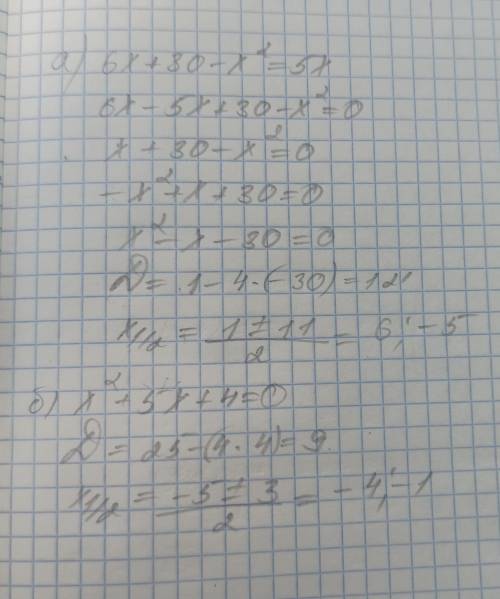 а) 6x+30-x²=5x
6x-5x+30-x²=0
x+30-x²=0
-x²+x+30=0
x²-x-30=0
D=1-4·(-30)=121
x₁/₂ = (1±11)/2 = 6; -5
б) x²+5x+4=0
D=25-(4·4)=9
x₁/₂ = (-5±3)/2 = -4; -1